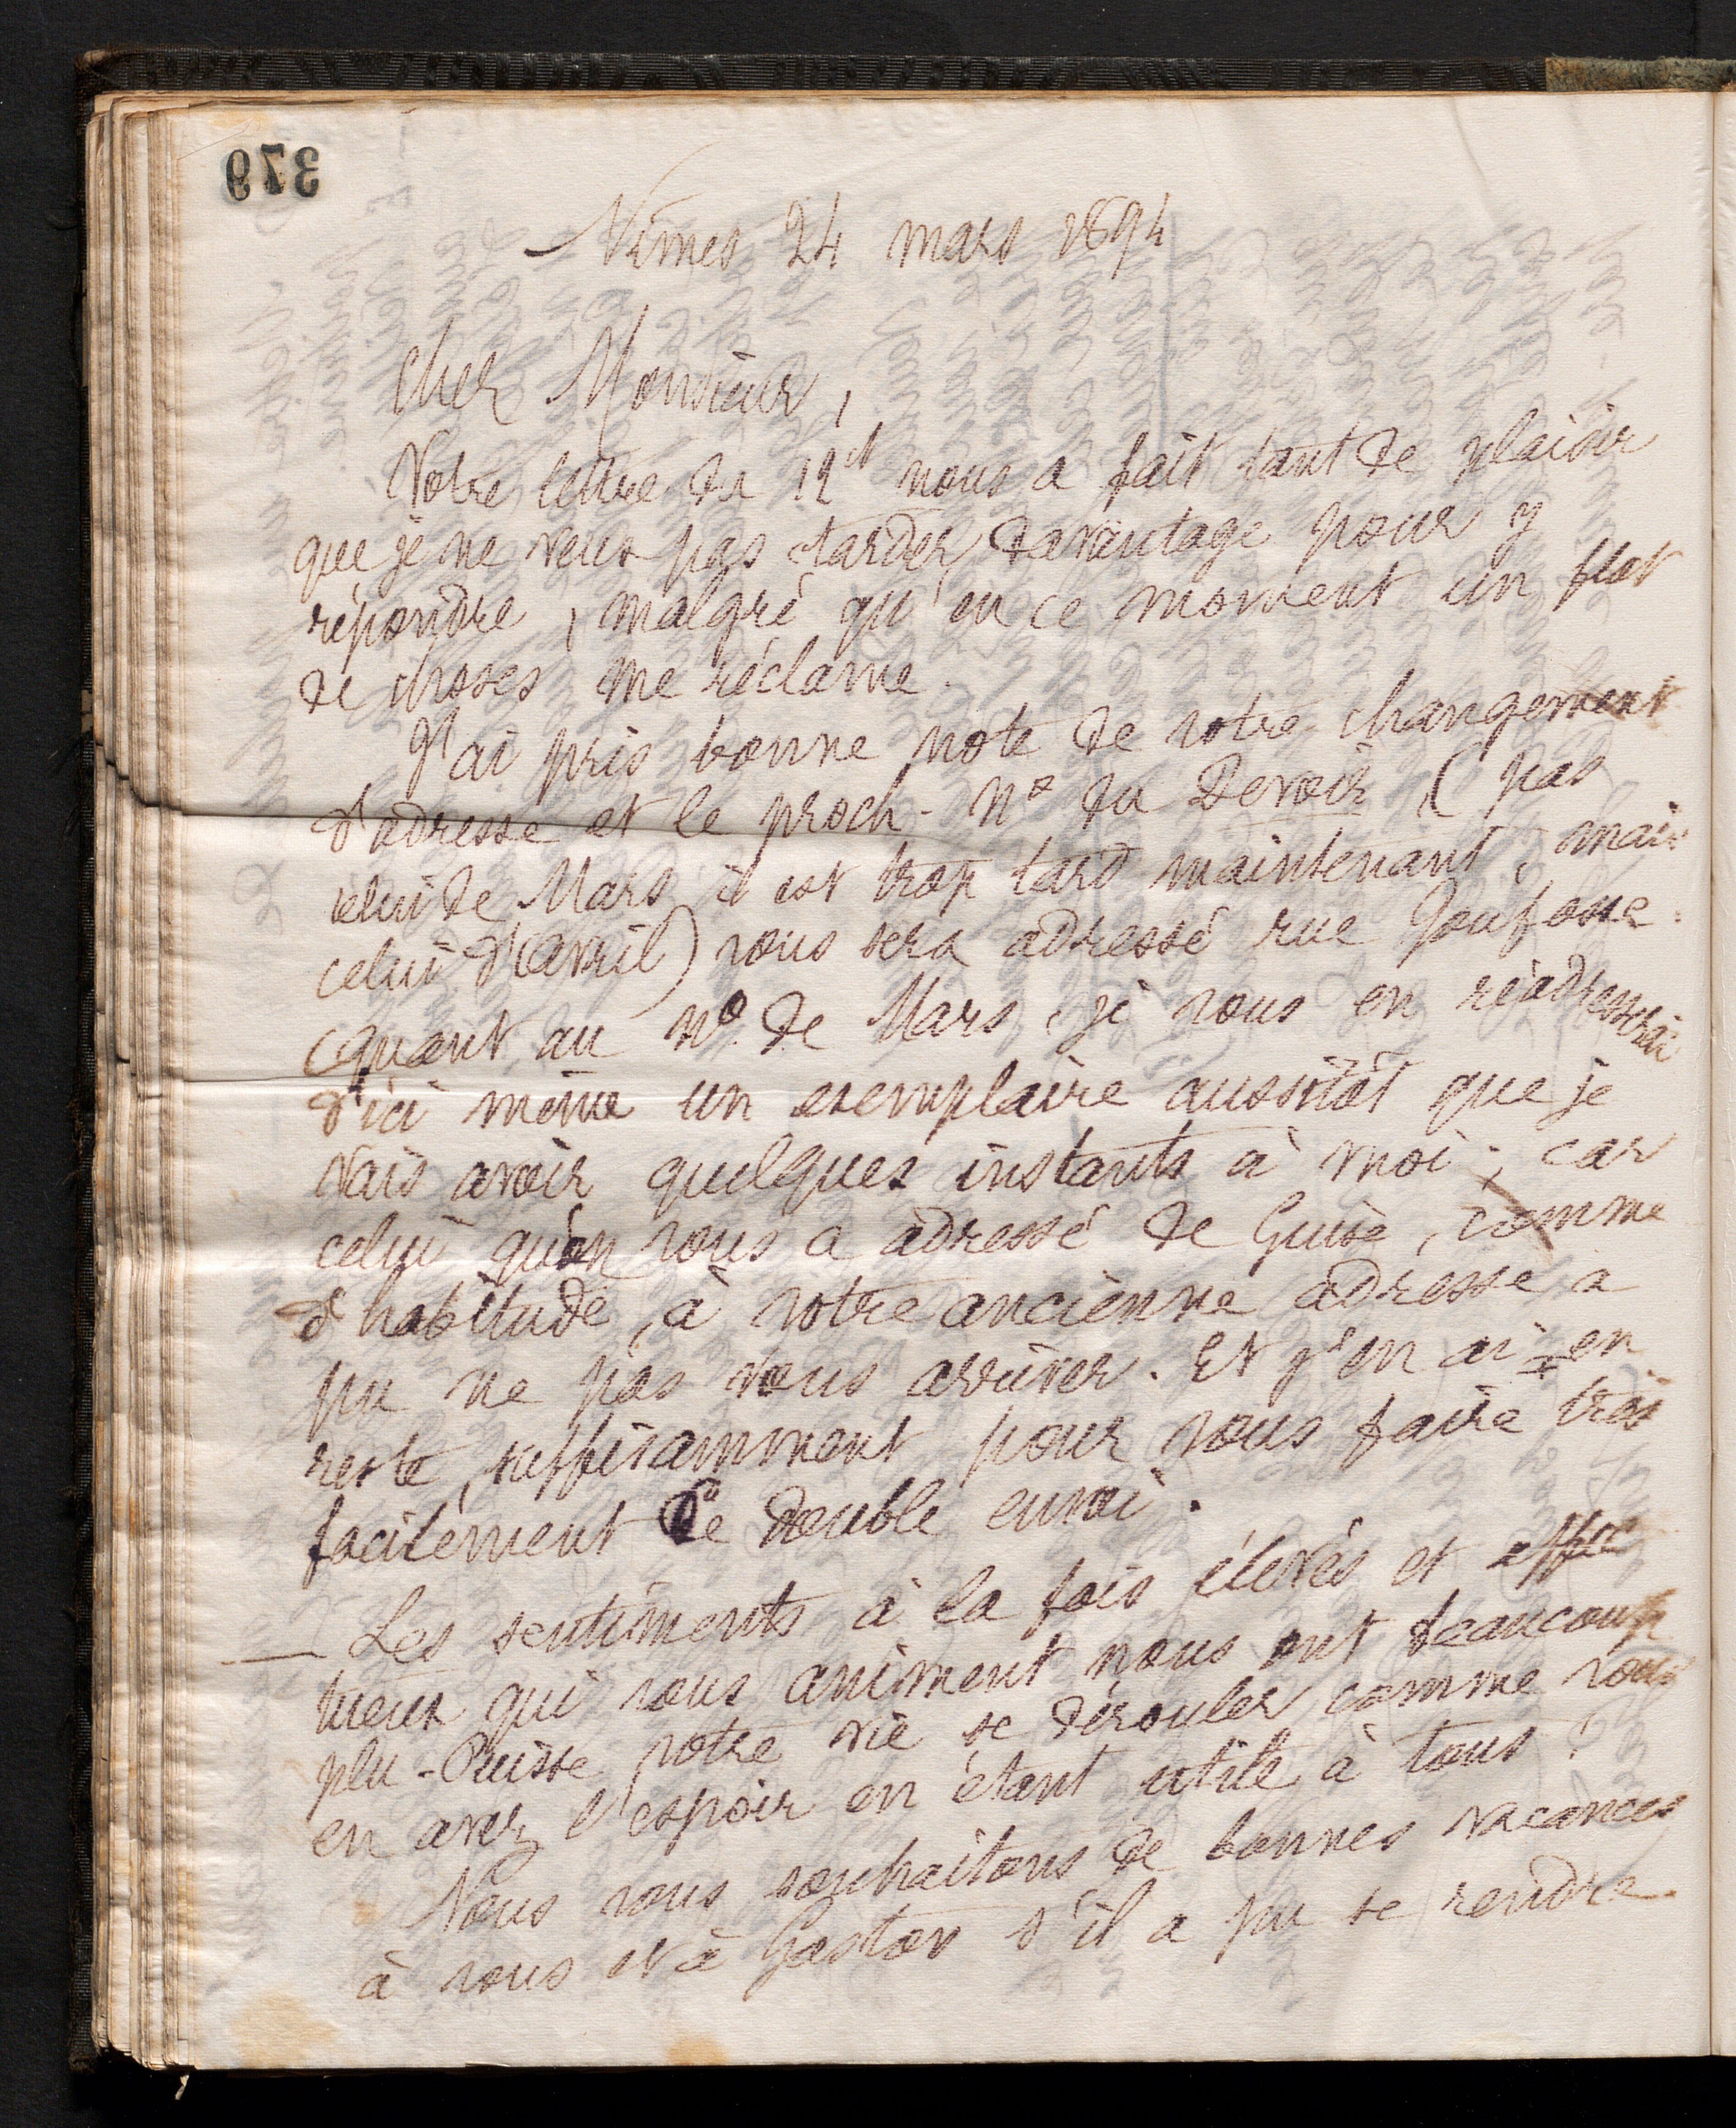 379
Nîmes 24 mars 1894
Cher Monsieur,
Votre lettre du 12 ct nous a fait tant de plaisir
que je ne veux pas tarder davantage pour y
répondre, malgré qu'en ce moment un flot
de choses me réclame.
J'ai pris bonne note de votre changement
d'adresse et le proch. No du Devoir, (pas
celui de Mars il est trop tard maintenant, mais
celui d'avril) vous sera adressé rue
Quant au no de Mars, je vous en réadresserai
d'ici même un exemplaire aussitôt que je
vais avoir quelques instants à moi; car
celui qu'on vous a adressé de Guise, comme
d'habitude, à votre ancienne adresse a
pu ne pas vous arriver. Et j'en ai en
reste, suffisamment pour vous faire très
facilement ce double envoi.
— Les sentiments à la fois élevés et affec
tueux qui vous animent nous ont beaucoup
plu - Puisse votre vie se dérouler comme vous
en avez l'espoir en étant utile à tous!
Nous vous souhaitons de bonnes vacances
à vous et à Gaston s'il a pu se rendre